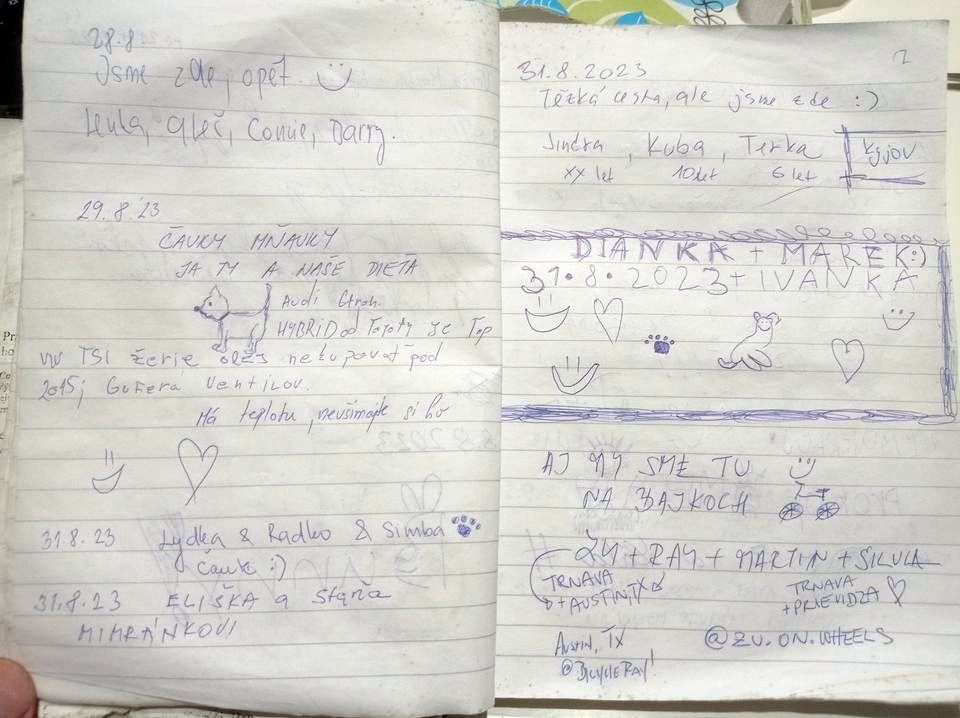 28.8
Jsme zde, opět
Lenka, Aleš, Connie, Darry.
29.8.23
ČAUKY MŇAUKY
JA TY A NAŠE DIEŤA
AUDI Etron.
HYBRID od Toyoty je Top
TSI žerie olej nekupovať pod
2015; Gufera Ventilov.
Má teplotu, nevšímajte si ho
31.8.23 Lydka & Radko & Simba
čauk :)
31.8.23 ELIŠKA a Stáňa
MIMRÁNKOVI
31.8.2023
Těžká cesta, ale jsme zde :)
Jindra, Kuba, Terka Kyjov
xx let 10 let 6 let
DIANKA + MAREK:)
31.8.2023 + IVANKA
AJ MY SME TU
NA BAJKOCH
ZU + RAY + MARTIN + SILVIA
TRNAVA
+ AUSTIN, TX
TRNAVA
+ PRIEVIDZA
Austin, TX
@BICYCLERAY1
@ZU.ON.WHEELS